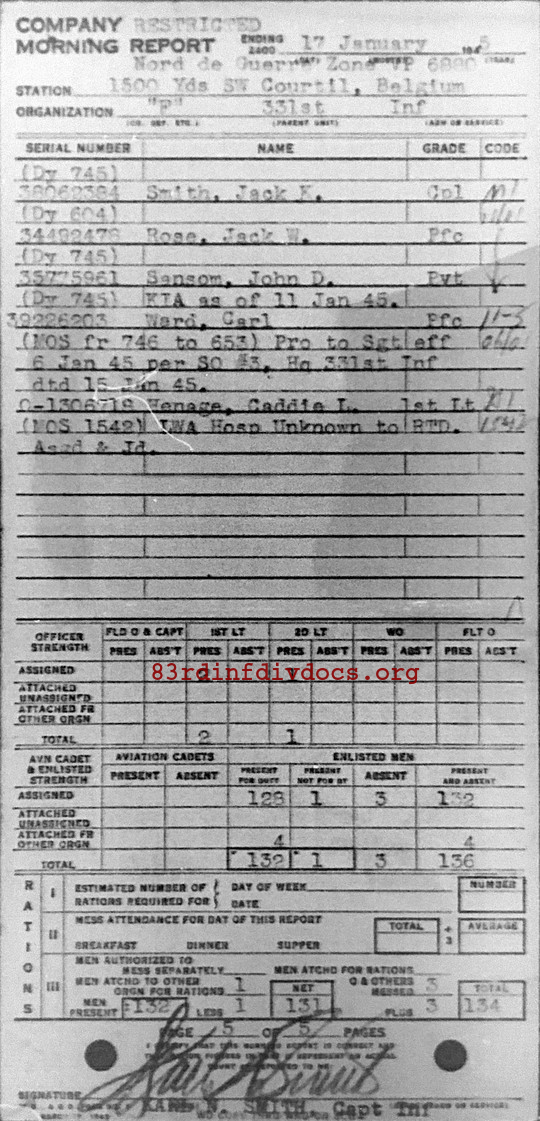 COMPANY RESTRICTED
MORNING REPORT ENDING 2400 17 January 1945
Nord de Guerre Zone VP 6880
STATION 1500 Yds SW Courtil, Belgium
ORGANIZATION "F" 331st Inf
(CO. DET. ETC.) (PARENT UNIT) (ARM OR SERVICE)
SERIAL NUMBER NAME GRADE CODE
(Dy 745)
38062384 Smith, Jack K. Cpl
(Dy 604)
34492478 Rose, Jack W. Pfc
(Dy 745)
35775961 Sansom, John D. Pvt
(Dy 745) KIA as of 11 Jan 45.
39226203 Ward, Carl Pfc
(MOS fr 746 to 653) Pro to Sgt eff
6 Jan 45 per SO #3, Hq 331st Inf
dtd 15 Jan 45.
O-1306718 Henage, Caddie L. 1st Lt
(MOS 1542) LWA Hosp Unknown to RTD. 1542
Asgd & Jd.
OFFICER STRENGTH FLD O & CAPT 1ST LT 2D LT WO FLT O
PRES ABS'T PRES ABS'T PRES ABS'T PRES ABS'T PRES ABS'T
ASSIGNED 2 1
83rdinfdivdocs.org
ATTACHED UNASSIGNED
ATTACHED FR OTHER ORGN
TOTAL 2 1
AVN CADET & ENLISTED STRENGTH AVIATION CADETS ENLISTED MEN
PRESENT ABSENT PRESENT FOR DUTY PRESENT NOT FOR DY ABSENT PRESENT AND ABSENT
ASSIGNED 128 1 3 132
ATTACHED UNASSIGNED
ATTACHED FR OTHER ORGN 4 4
TOTAL 132 1 3 136
RATIONS
I ESTIMATED NUMBER OF RATIONS REQUIRED FOR { DAY OF WEEK DATE NUMBER
II MESS ATTENDANCE FOR DAY OF THIS REPORT TOTAL ÷ 3 AVERAGE
BREAKFAST DINNER SUPPER
III MEN AUTHORIZED TO MESS SEPARATELY MEN ATCHD FOR RATIONS
MEN ATCHD TO OTHER ORGN FOR RATIONS 1 NET O & OTHERS MESSED 3 TOTAL
MEN PRESENT 132 LESS 1 131 PLUS 3 134
PAGE 5 OF 5 PAGES
I CERTIFY THAT THIS MORNING REPORT IS CORRECT AND
SIGNATURE
KARL N. SMITH, Capt Inf